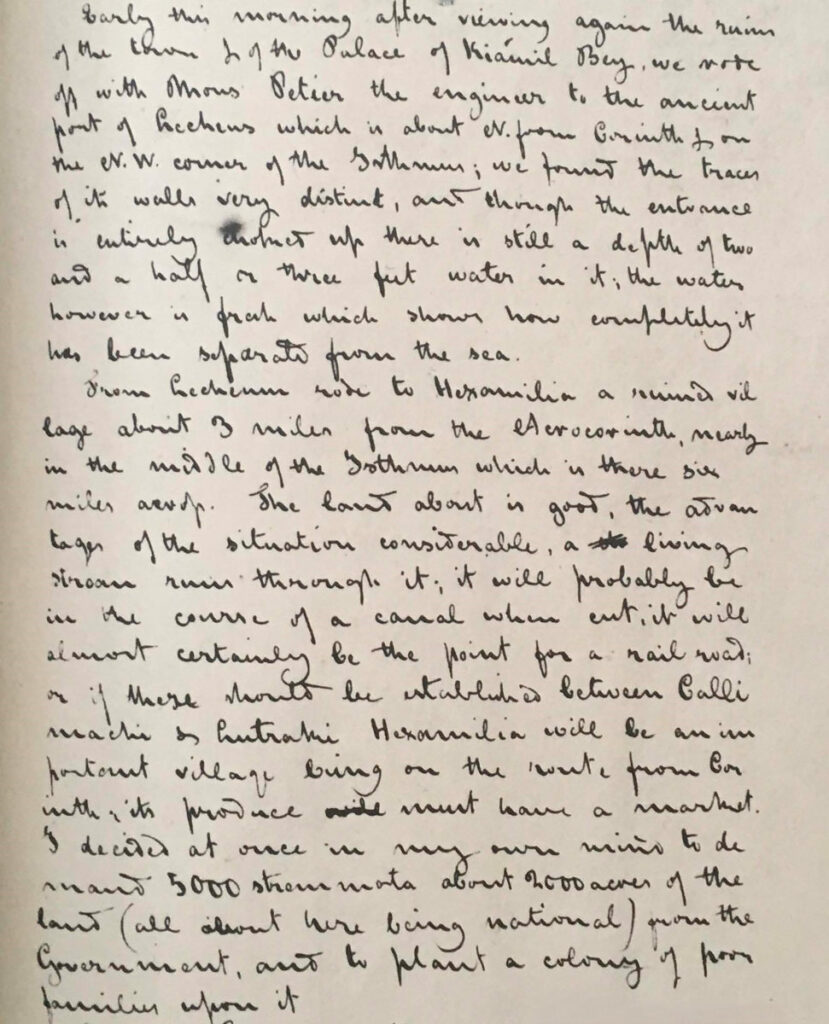 Early this morning after viewing again the ruins
of the town & of the Palace of Kiámil Bey, we rode
off with Mons Petier the engineer to the ancient
port of Lecheus which is about N. from Corinth & on
the N.W. corner of the Isthmus; we found the traces
of its walls very distinct, and though the entrance
is entirely up there is still a depth of two
and a half or three feet water in it; the water
however is fresh which shows how completely it
has been separated from the sea.
From Lecheum rode to Hexamilia a ruined vil
lage about 3 miles from the Acrocorinth, nearly
in the middle of the Isthmus which is there six
miles across. The land about is good, the advan
tages of the situation considerable, a living
stream runs through it; it will probably be
in the course of a canal when cut, it will
almost certainly be the point for a rail road;
or if these should be established between Calli
machi & Lutraki Hexamilia will be an im
portant village being on the route from Cor
inth; its produce must have a market.
I decided at once in my own mind to de
mand 5000 stremmata about 2000 acres of the
land (all about here being national) from the
Government, and to plant a colony of poor
families upon it